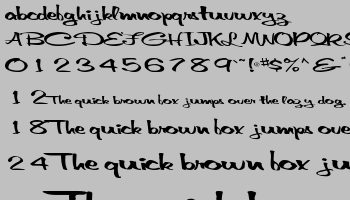 abcdefghijklmnopqrstuvwxyz
ABCDEFGHIJKLMNOPQRS
0123456789"~'!®#$%^&*
12 The quick brown fox jumps over the lazy dog.
18 The quick brown fox jumps ove
24 The quick brown fox ju